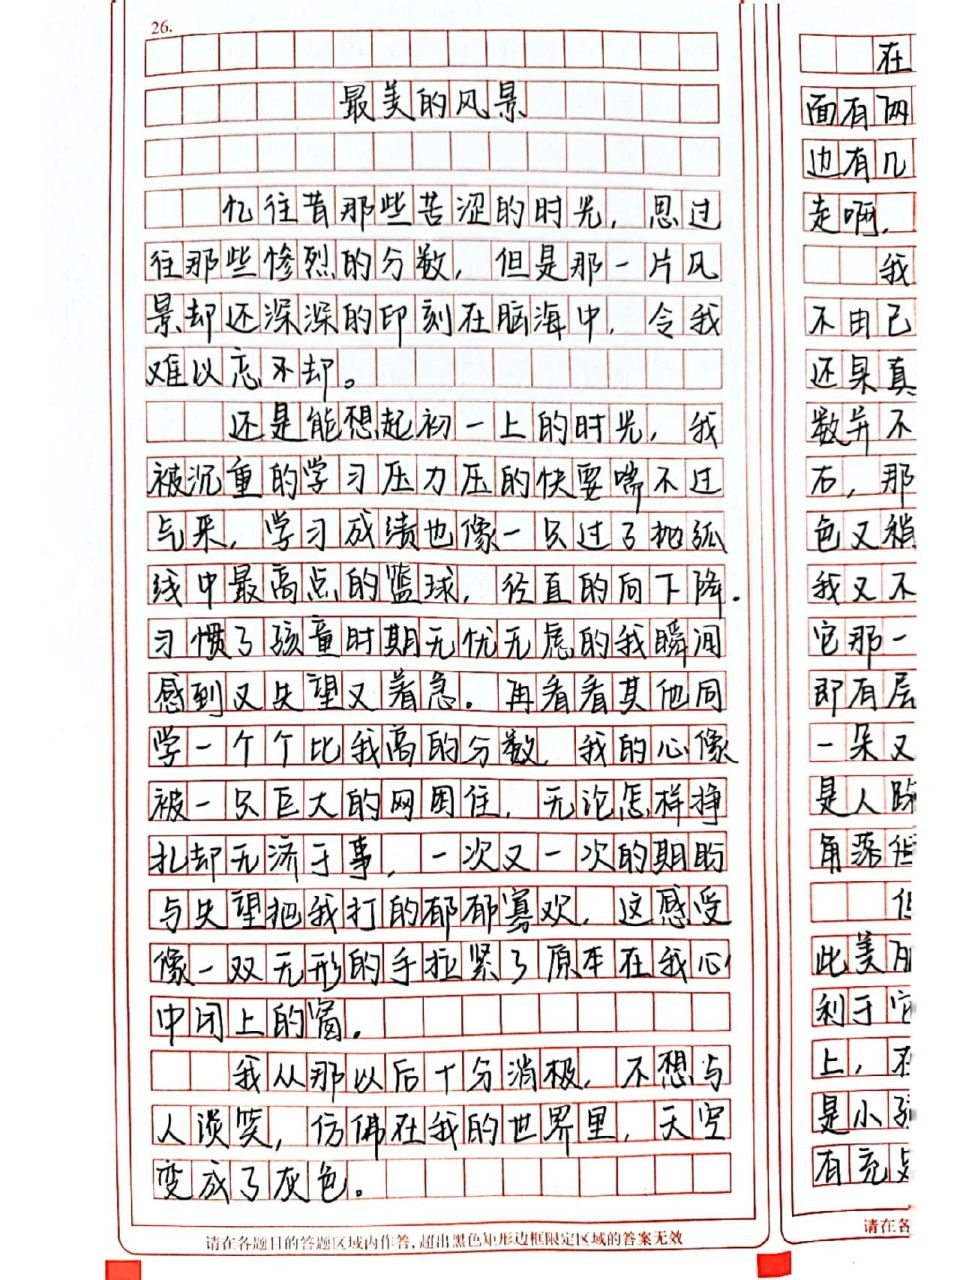 26.
最美的风景
忆往昔那些苦涩的时光，思过
往那些惨烈的分数，但是那一片风
景却还深深的印刻在脑海中，令我
难以忘不却。
还是能想起初一上的时光，我
被沉重的学习压力压的快要喘不过
气来，学习成绩也像一只过了抛弧
线中最高点的篮球，径直的向下降．
习惯了孩童时期无忧无虑的我瞬间
感到又失望又着急。再看看其他同
学一个个比我高的分数，我的心像
被一只巨大的网困住，无论怎样挣
扎却无济于事，一次又一次的期盼
与失望把我打的郁郁寡欢，这感受
像一双无形的手拉紧了原本在我心
中闭上的窗。
我从那以后十分消极，不想与
人谈笑，仿佛在我的世界里，天空
变成了灰色。
请在各题目的答题区域内作答，超出黑色矩形边框限定区域的答案无效
在
面有两
边有几
走啊，
我
不由己
还果真
数并不
右，那
色又稍
我又不
它那一
即有层
一朵又
是人踪
角落但
但
此美
利于它
上，
是小孩
有充
请在各